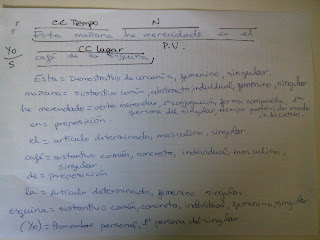 CC Tiempo N
Esta mañana he merendado en el
Yo CC lugar P.V.
S café de la esquina,
Esta = Demostrativo de cercanía, femenino, singular.
mañana = sustantivo común, abstracto, individual, femenino, singular.
he merendado = verbo merendar, 1ª conjugación, forma compuesta, 1ª
persona del singular, tiempo pretérito modo
indicativo.
en = preposición
el = artículo determinado, masculino, singular
café = sustantivo común, concreto, individual, masculino,
singular.
de = preposición
la = Artículo determinado, femenino, singular.
esquina = sustantivo común, concreto, individual, femenino, singular
(Yo) = Pronombre personal, 1ª persona del singular